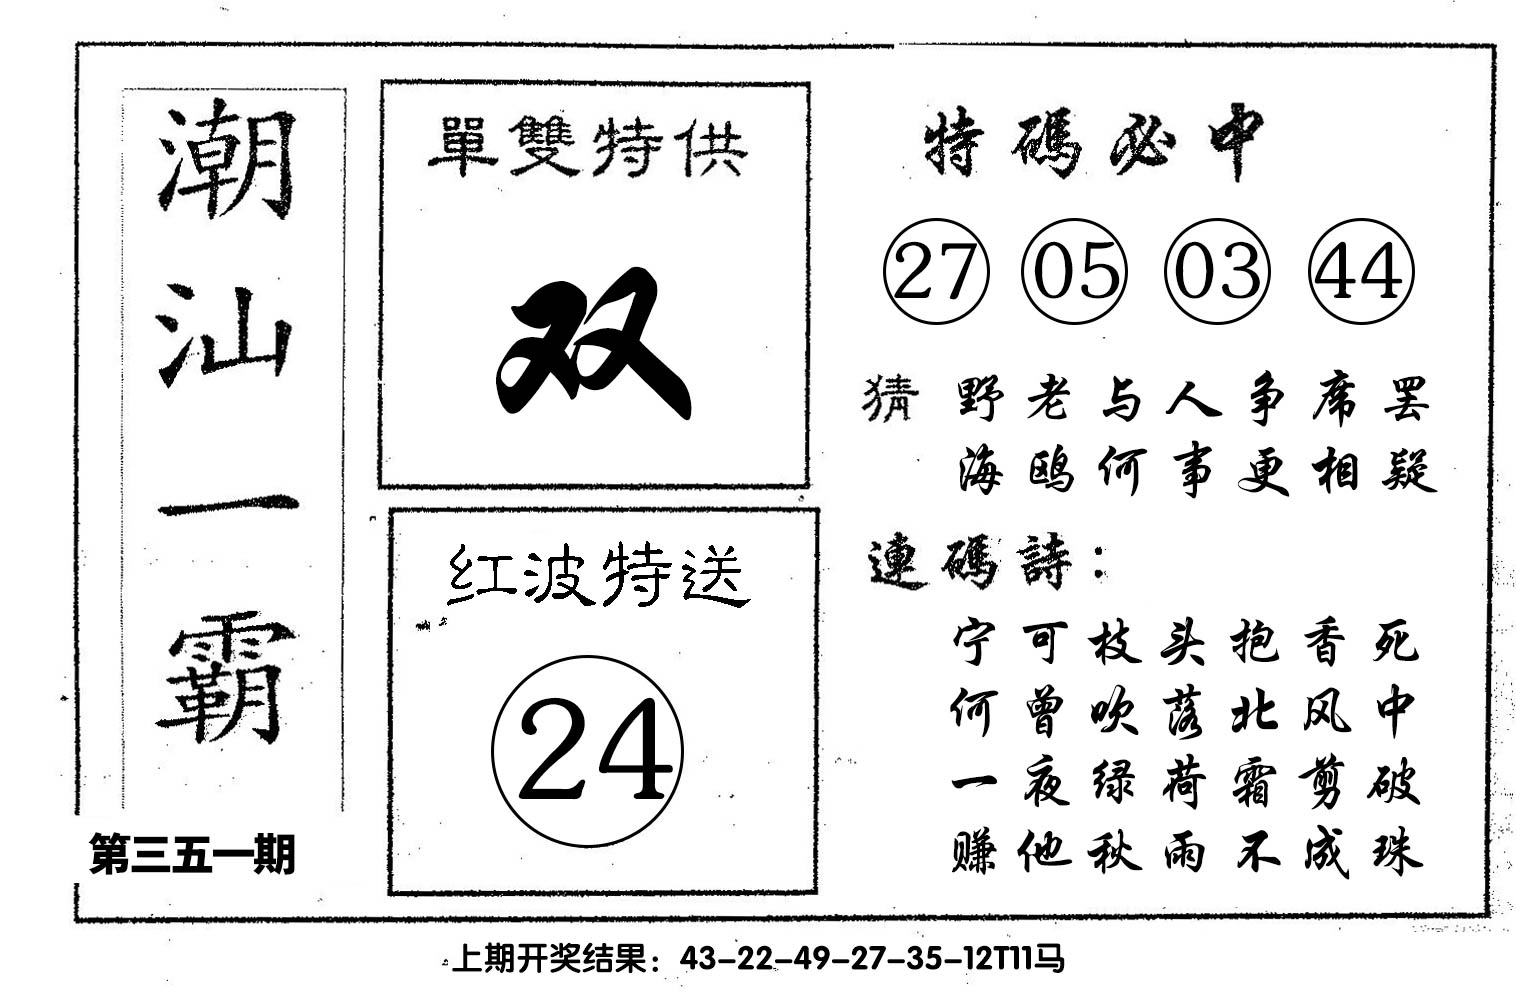 潮汕一霸
第三五一期
單雙特供
双
红波特送
24
特碼必中
27 05 03 44
猜 野老与人争席罢
海鸥何事更相疑
連碼詩：
宁可枝头抱香死
何曾吹落北风中
一夜绿荷霜剪破
赚他秋雨不成珠
上期开奖结果：43-22-49-27-35-12T11马